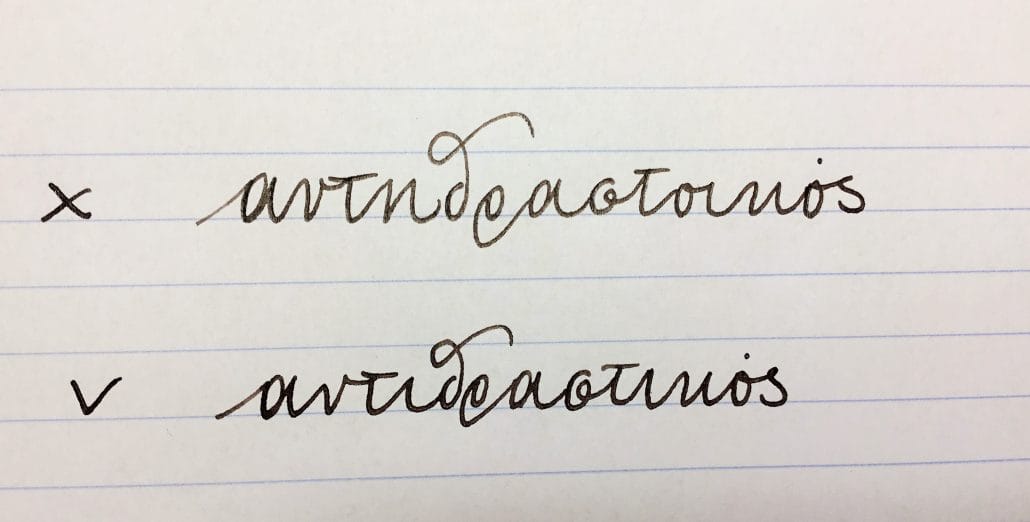 x αντηδραστοικός
v αντιδραστικός